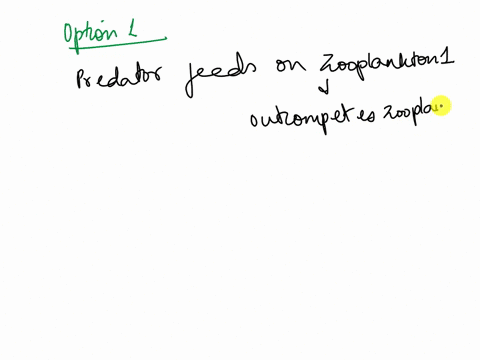 Option 1
Predator feeds on zooplankton1
outcompetes zoopla